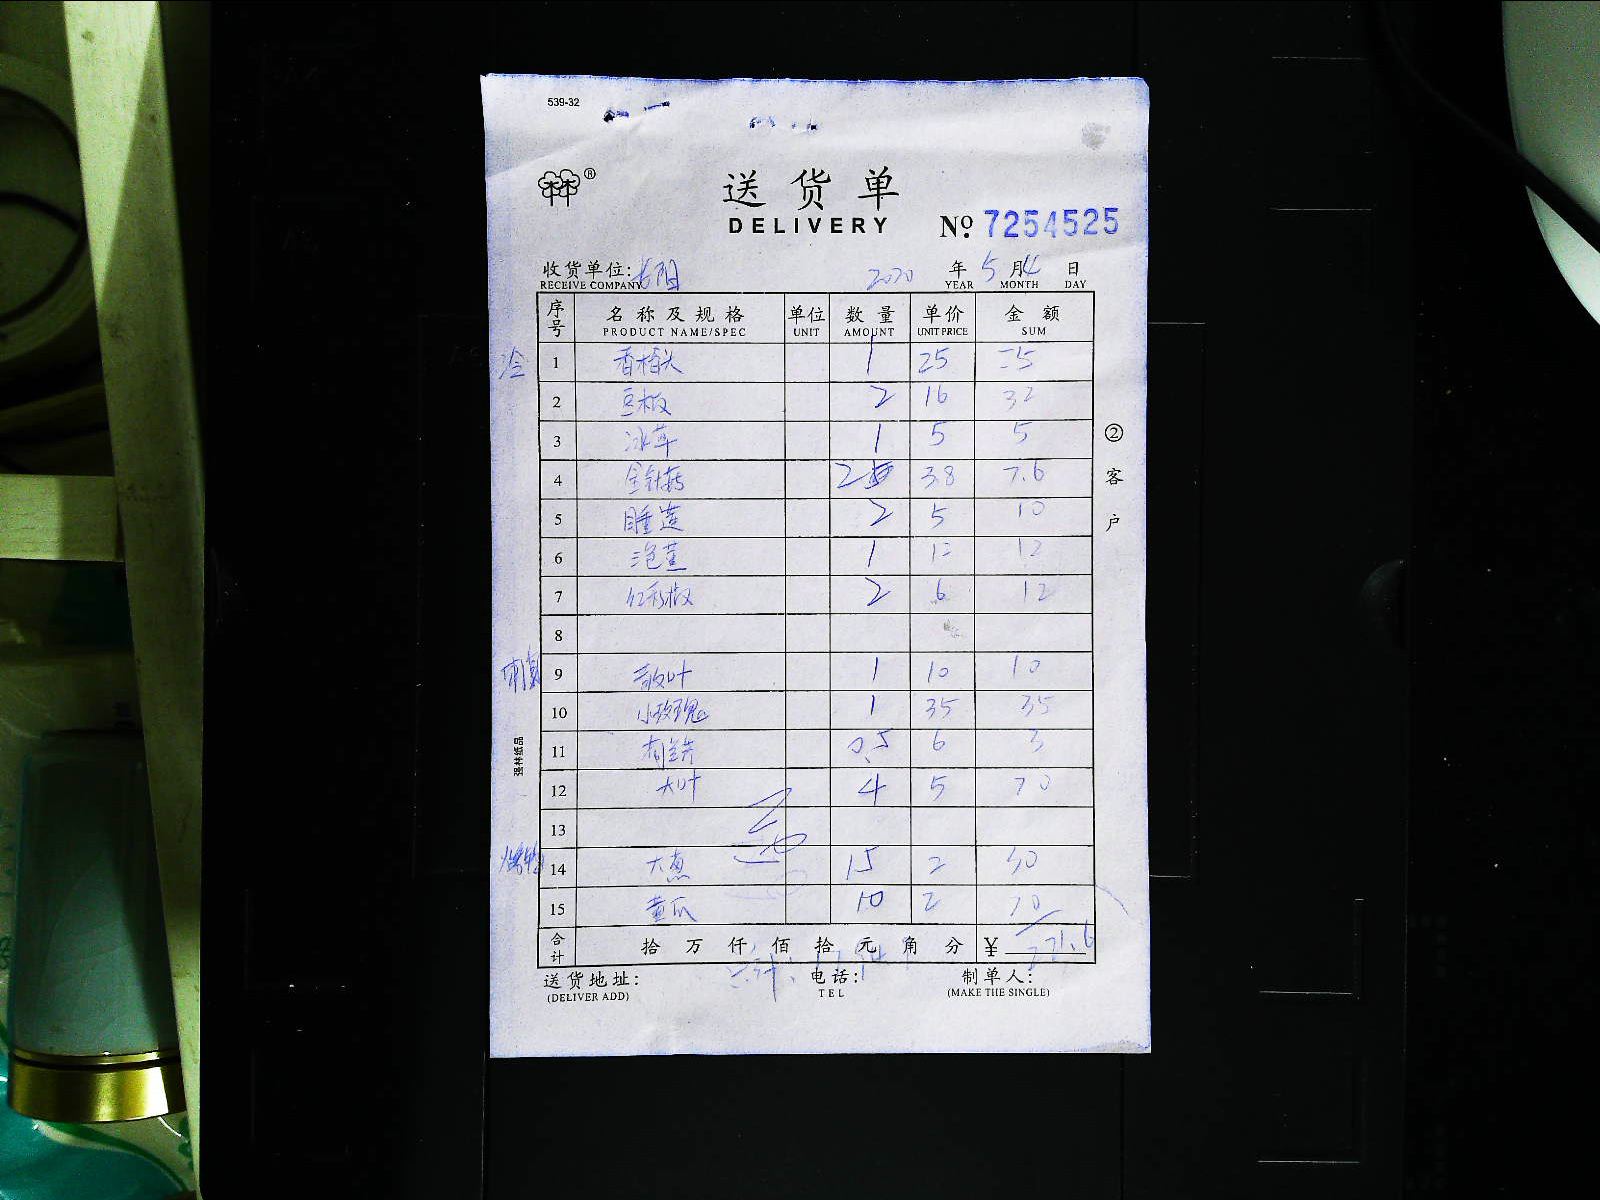 539-32
®
送货单
DELIVERY
№ 7254525
收货单位: 2020 年 5 月 4 日
RECEIVE COMPANY YEAR MONTH DAY
序号 名称及规格 单位 数量 单价 金额
PRODUCT NAME/SPEC UNIT AMOUNT UNIT PRICE SUM
冷 1 1 25 25
2 豆板 2 16 32
3 冰草 1 5 5
4 2 38 7.6
5 睡莲 2 5 10
6 1 12 12
7 2 6 12
8
9 1 10 10
10 小玫瑰 1 35 35
11 0.5 6 3
12 大叶 4 5 20
13
14 大葱 15 2 30
15 黄瓜 10 2 20
合计 拾 万 仟 佰 拾 元 角 分 ¥ 221.6
送货地址: 电话: 制单人:
(DELIVER ADD) TEL (MAKE THE SINGLE)
② 客户
强林纸品